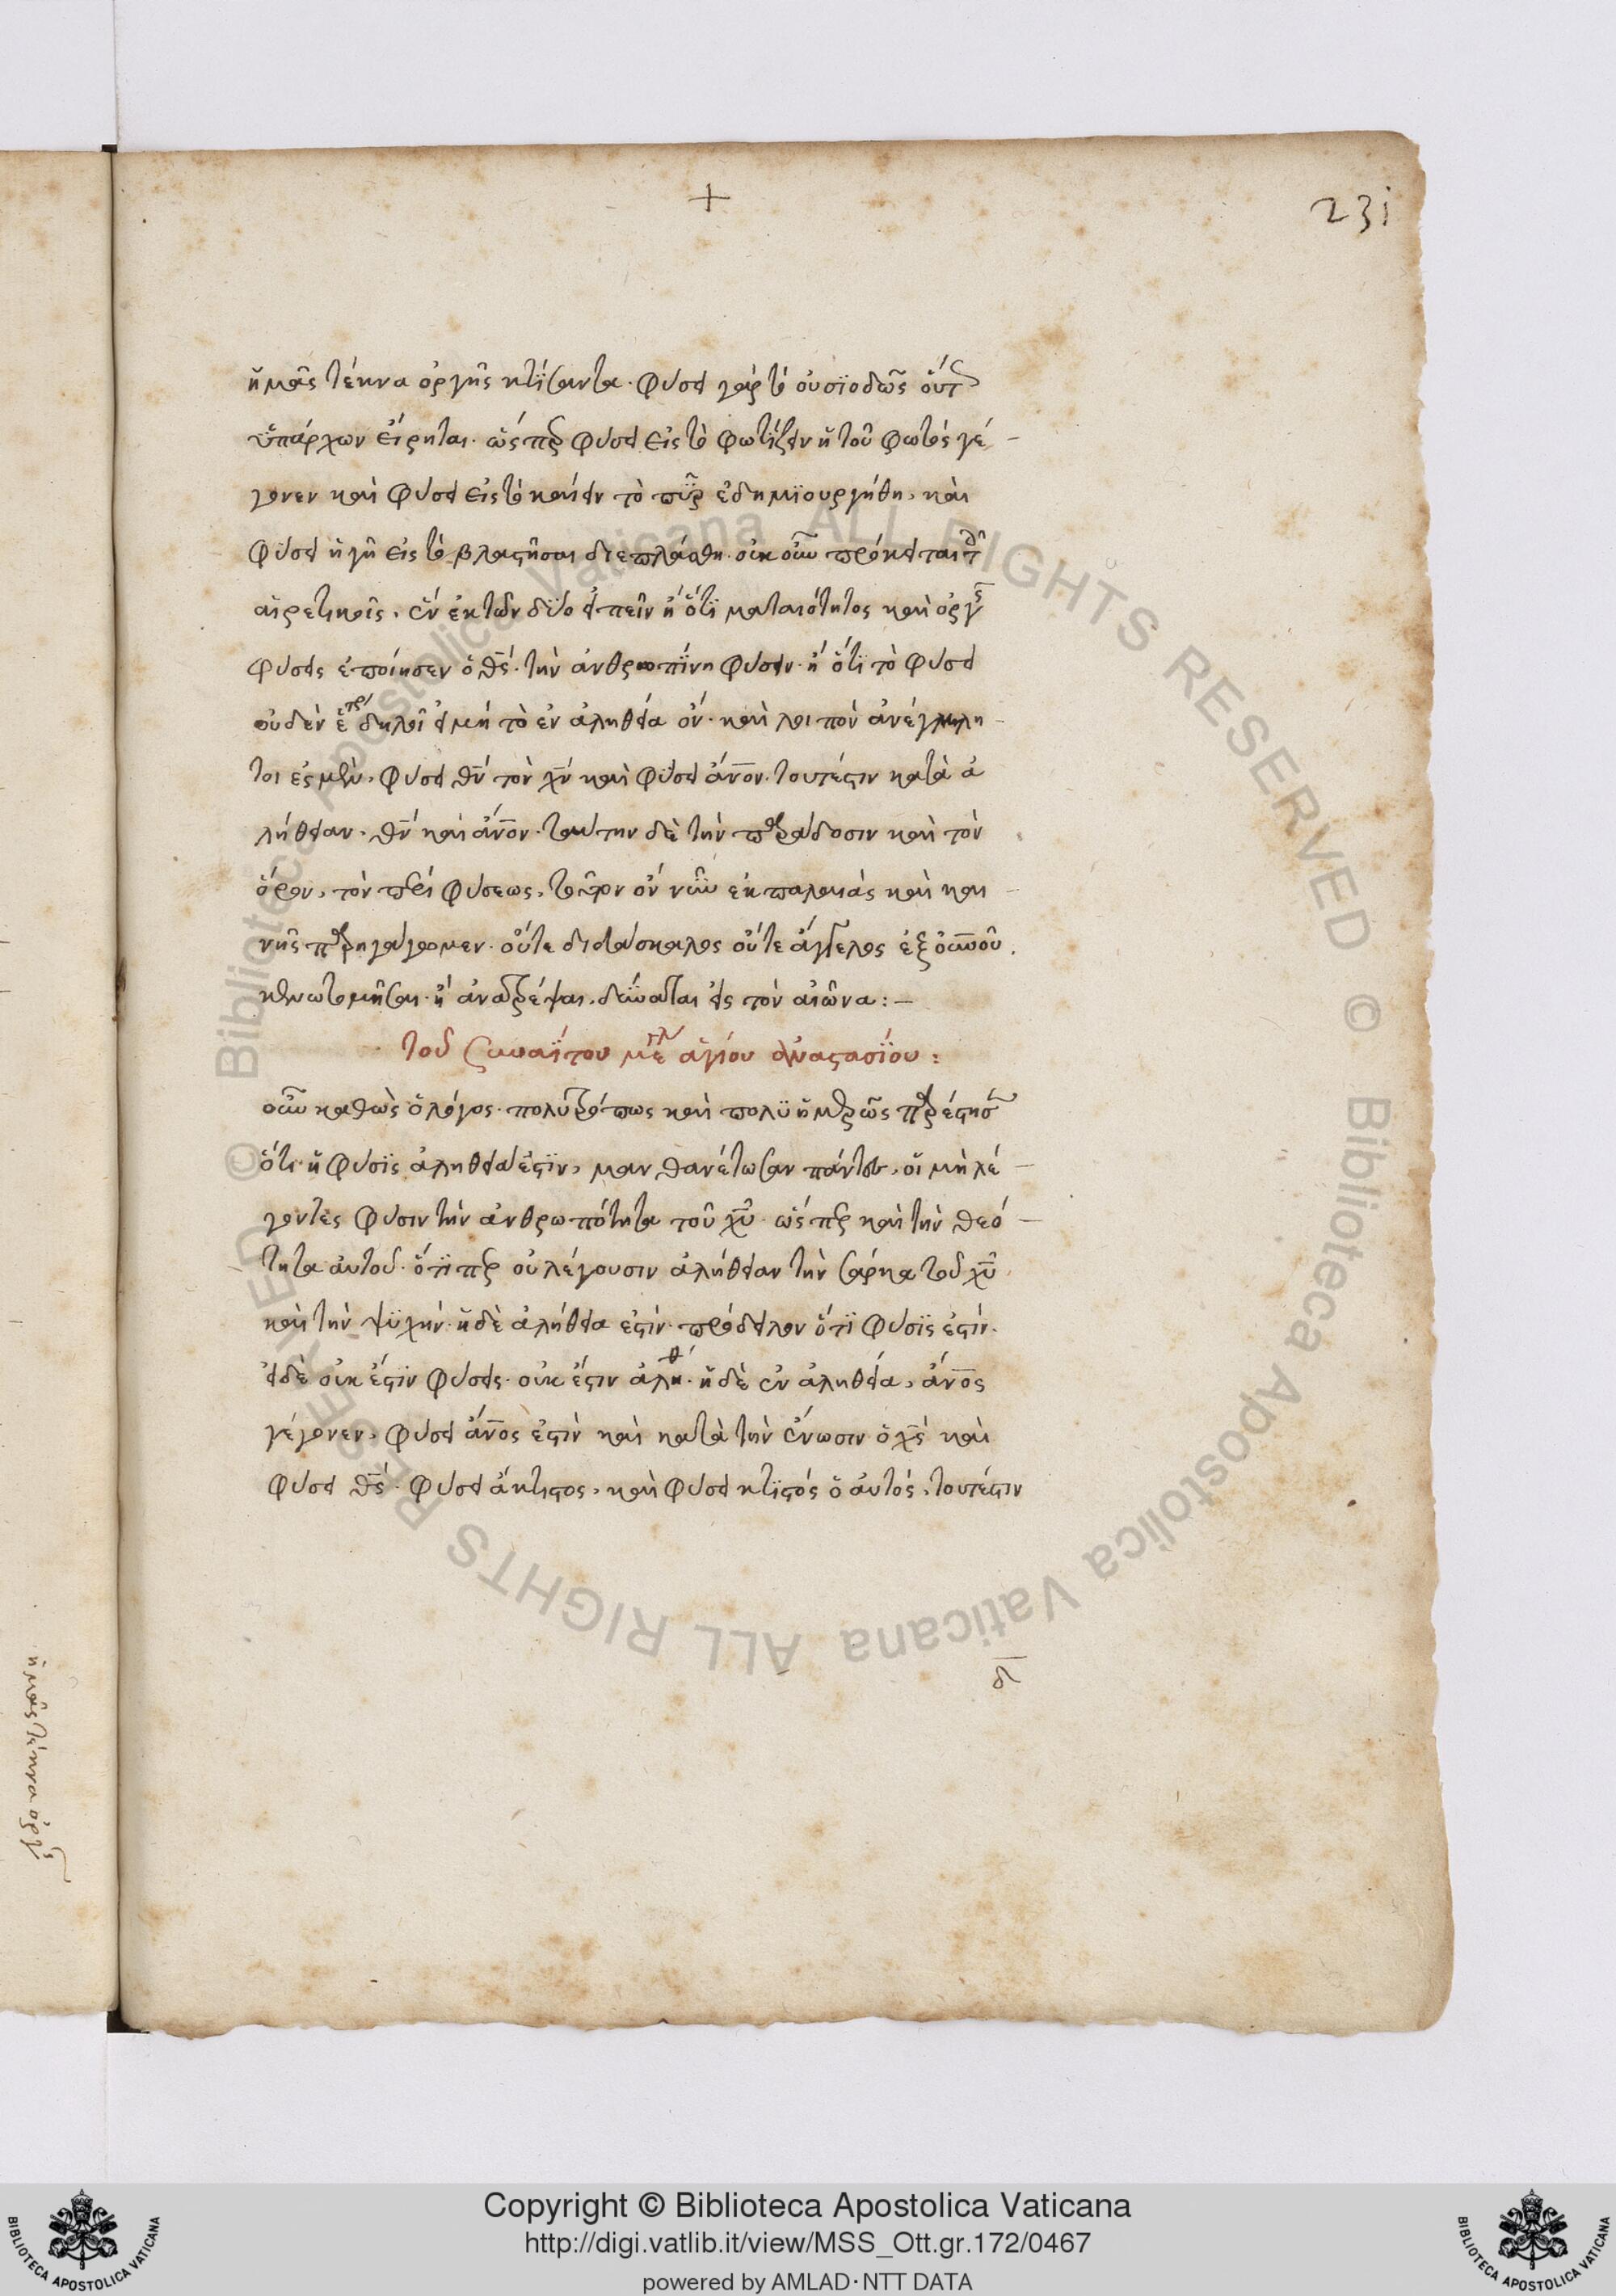 +
231
ἡμᾶς τέκνα ὀργῆς κτίσαντα. φύσει γὰρ τὸ οὐσϊοδῶς οὕτ
ὑπάρχων εἴρηται. ὥσπερ φύσει εἰς τὸ φωτίζειν ἡ τοῦ φωτός γέ-
γονεν καὶ φύσει εἰς τὸ καίειν τὸ πῦρ ἐδημϊουργήθη, καὶ
φύσει ἡ γῆ εἰς τὸ βλαστῆσαι διεπλάσθη. οὐκ οὖν πρόκειται τ
αἱρετικοῖς, ἓν ἐκ τῶν δύο εἰπεῖν ἢ ὅτι ματαιότητος καὶ ὀργῆς
φύσεις ἐποίησεν ὁ θς. τὴν ἀνθρωπίνη φύσειν. ἢ ὅτι τὸ φύσει
οὐδὲν ἕτερ δηλοῖ εἰ μή τὸ ἐν ἀληθεία ὄν. καὶ λοιπὸν ἀνέγκλη-
τοι ἐσμὲν, φύσει θν τὸν χν καὶ φύσει ἄνον. τουτέστιν κατὰ ἀ
λήθειαν. θν καὶ ἄνον. ταύτην δὲ τὴν παράδοσιν καὶ τὸν
ὅρον, τὸν περὶ φύσεως, ὃν νῦν ἐκ παλαιᾶς καὶ και-
νῆς παρηγάγομεν. οὔτε διδάσκαλος οὔτε ἄγγελος ἐξ οὐνοῦ.
καινωτομῆσαι. ἢ ἀνατρέψαι. δύναται εἰς τὸν αἰῶνα: –
τοῦ σιναΐτου μεγλ ἁγίου ἀναστασΐου:
οὖν καθὼς ὁ λόγος. πολυτρόπως καὶ πολυημερῶς παρέστησ
ὅτι ἡ φύσϊς ἀλήθεια ἐστϊν, μανθανέτωσαν πάντες, οἱ μὴ λέ-
γοντες φύσιν τὴν ἀνθρωπότητα τοῦ χυ. ὥσπερ καὶ τὴν θεό-
τητα αὐτοῦ. ὅτϊ περ οὐ λέγουσιν ἀλήθειαν τὴν σάρκα τοῦ χυ
καὶ τὴν ψϋχήν. ἡ δὲ ἀλήθεια ἐστίν. πρόδειλον ὅτϊ φύσϊς ἐστίν.
εἰ δὲ οὐκ ἔστιν φύσεις. οὐκ ἔστιν ἀληθ. ἡ δὲ ἐν ἀληθεία, ἄνος
γέγονεν, φύσει ἄνος ἐστὶν καὶ κατὰ τὴν ἕνωσιν ὁ χς καὶ
φύσει θς. φύσει ἄκτιστος, καὶ φύσει κτϊστός ὁ αὐτός, τουτέστιν
ἡμᾶς τέκνα ὀργῆς
Copyright © Biblioteca Apostolica Vaticana
http://digi.vatlib.it/view/MSS_Ott.gr.172/0467
powered by AMLAD·NTT DATA
BIBLIOTECA APOSTOLICA VATICANA
BIBLIOTECA APOSTOLICA VATICANA
© Biblioteca Apostolica Vaticana ALL RIGHTS RESERVED
© Biblioteca Apostolica Vaticana ALL RIGHTS RESERVED